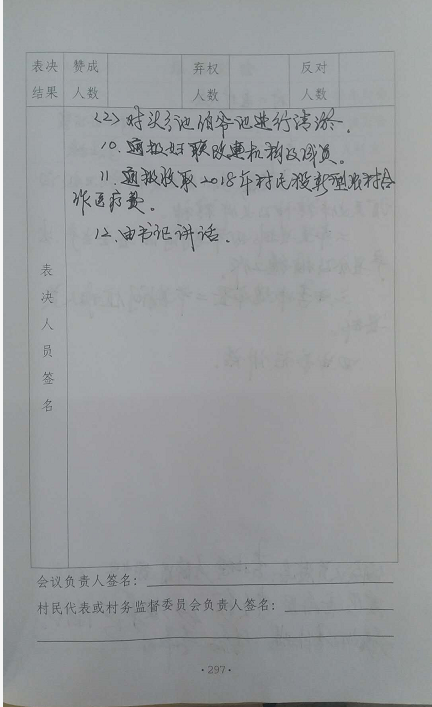 表决 赞成 弃权 反对
结果 人数 人数 人数
(2)对头 池 池进行清淤。
10.通报妇联改建机构及成员。
11.通报收取2018年村民 新型农村合
作医疗费。
12.由书记讲话。
表决人员签名
会议负责人签名：
村民代表或村务监督委员会负责人签名：
·297·